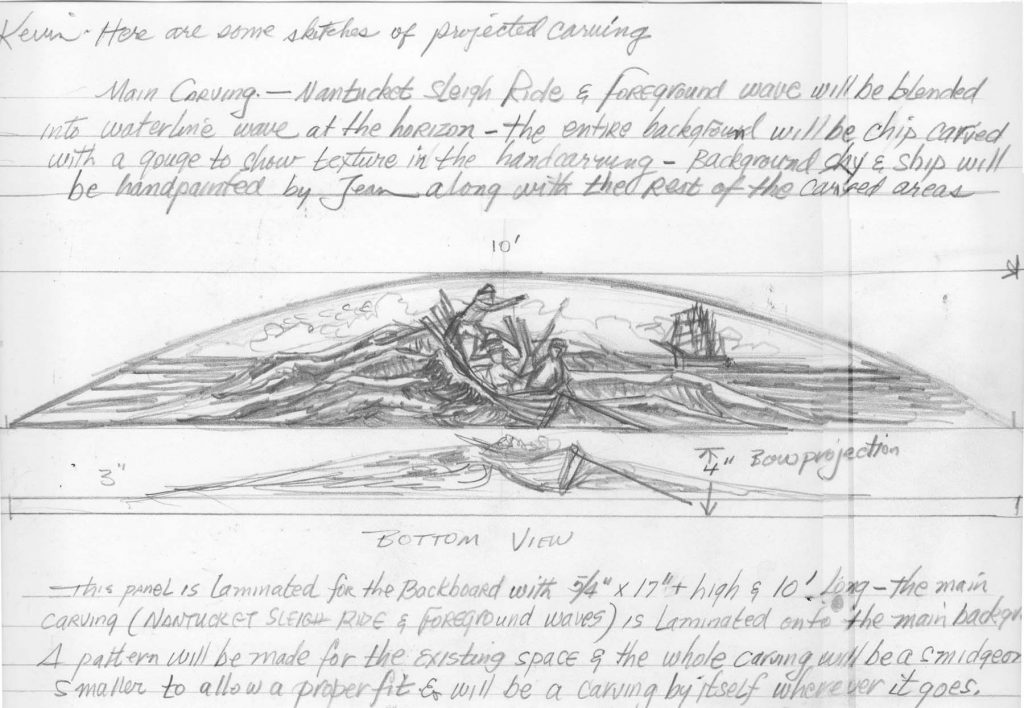 Kevin - Here are some sketches of projected carving
Main Carving. — Nantucket Sleigh Ride & foreground wave will be blended
into waterline wave at the horizon - the entire background will be chip carved
with a gouge to show texture in the handcarving - Background sky & ship will
be handpainted by Jean along with the rest of the carved areas
10'
3"
4" Bow projection
BOTTOM VIEW
This panel is laminated for the Backboard with 5/4" x 17"+ high & 10' Long - the main
carving (NANTUCKET SLEIGH RIDE & foreground waves) is laminated onto the main backgr
A pattern will be made for the existing space & the whole carving will be a smidgeon
smaller to allow a proper fit & will be a carving by itself wherever it goes.